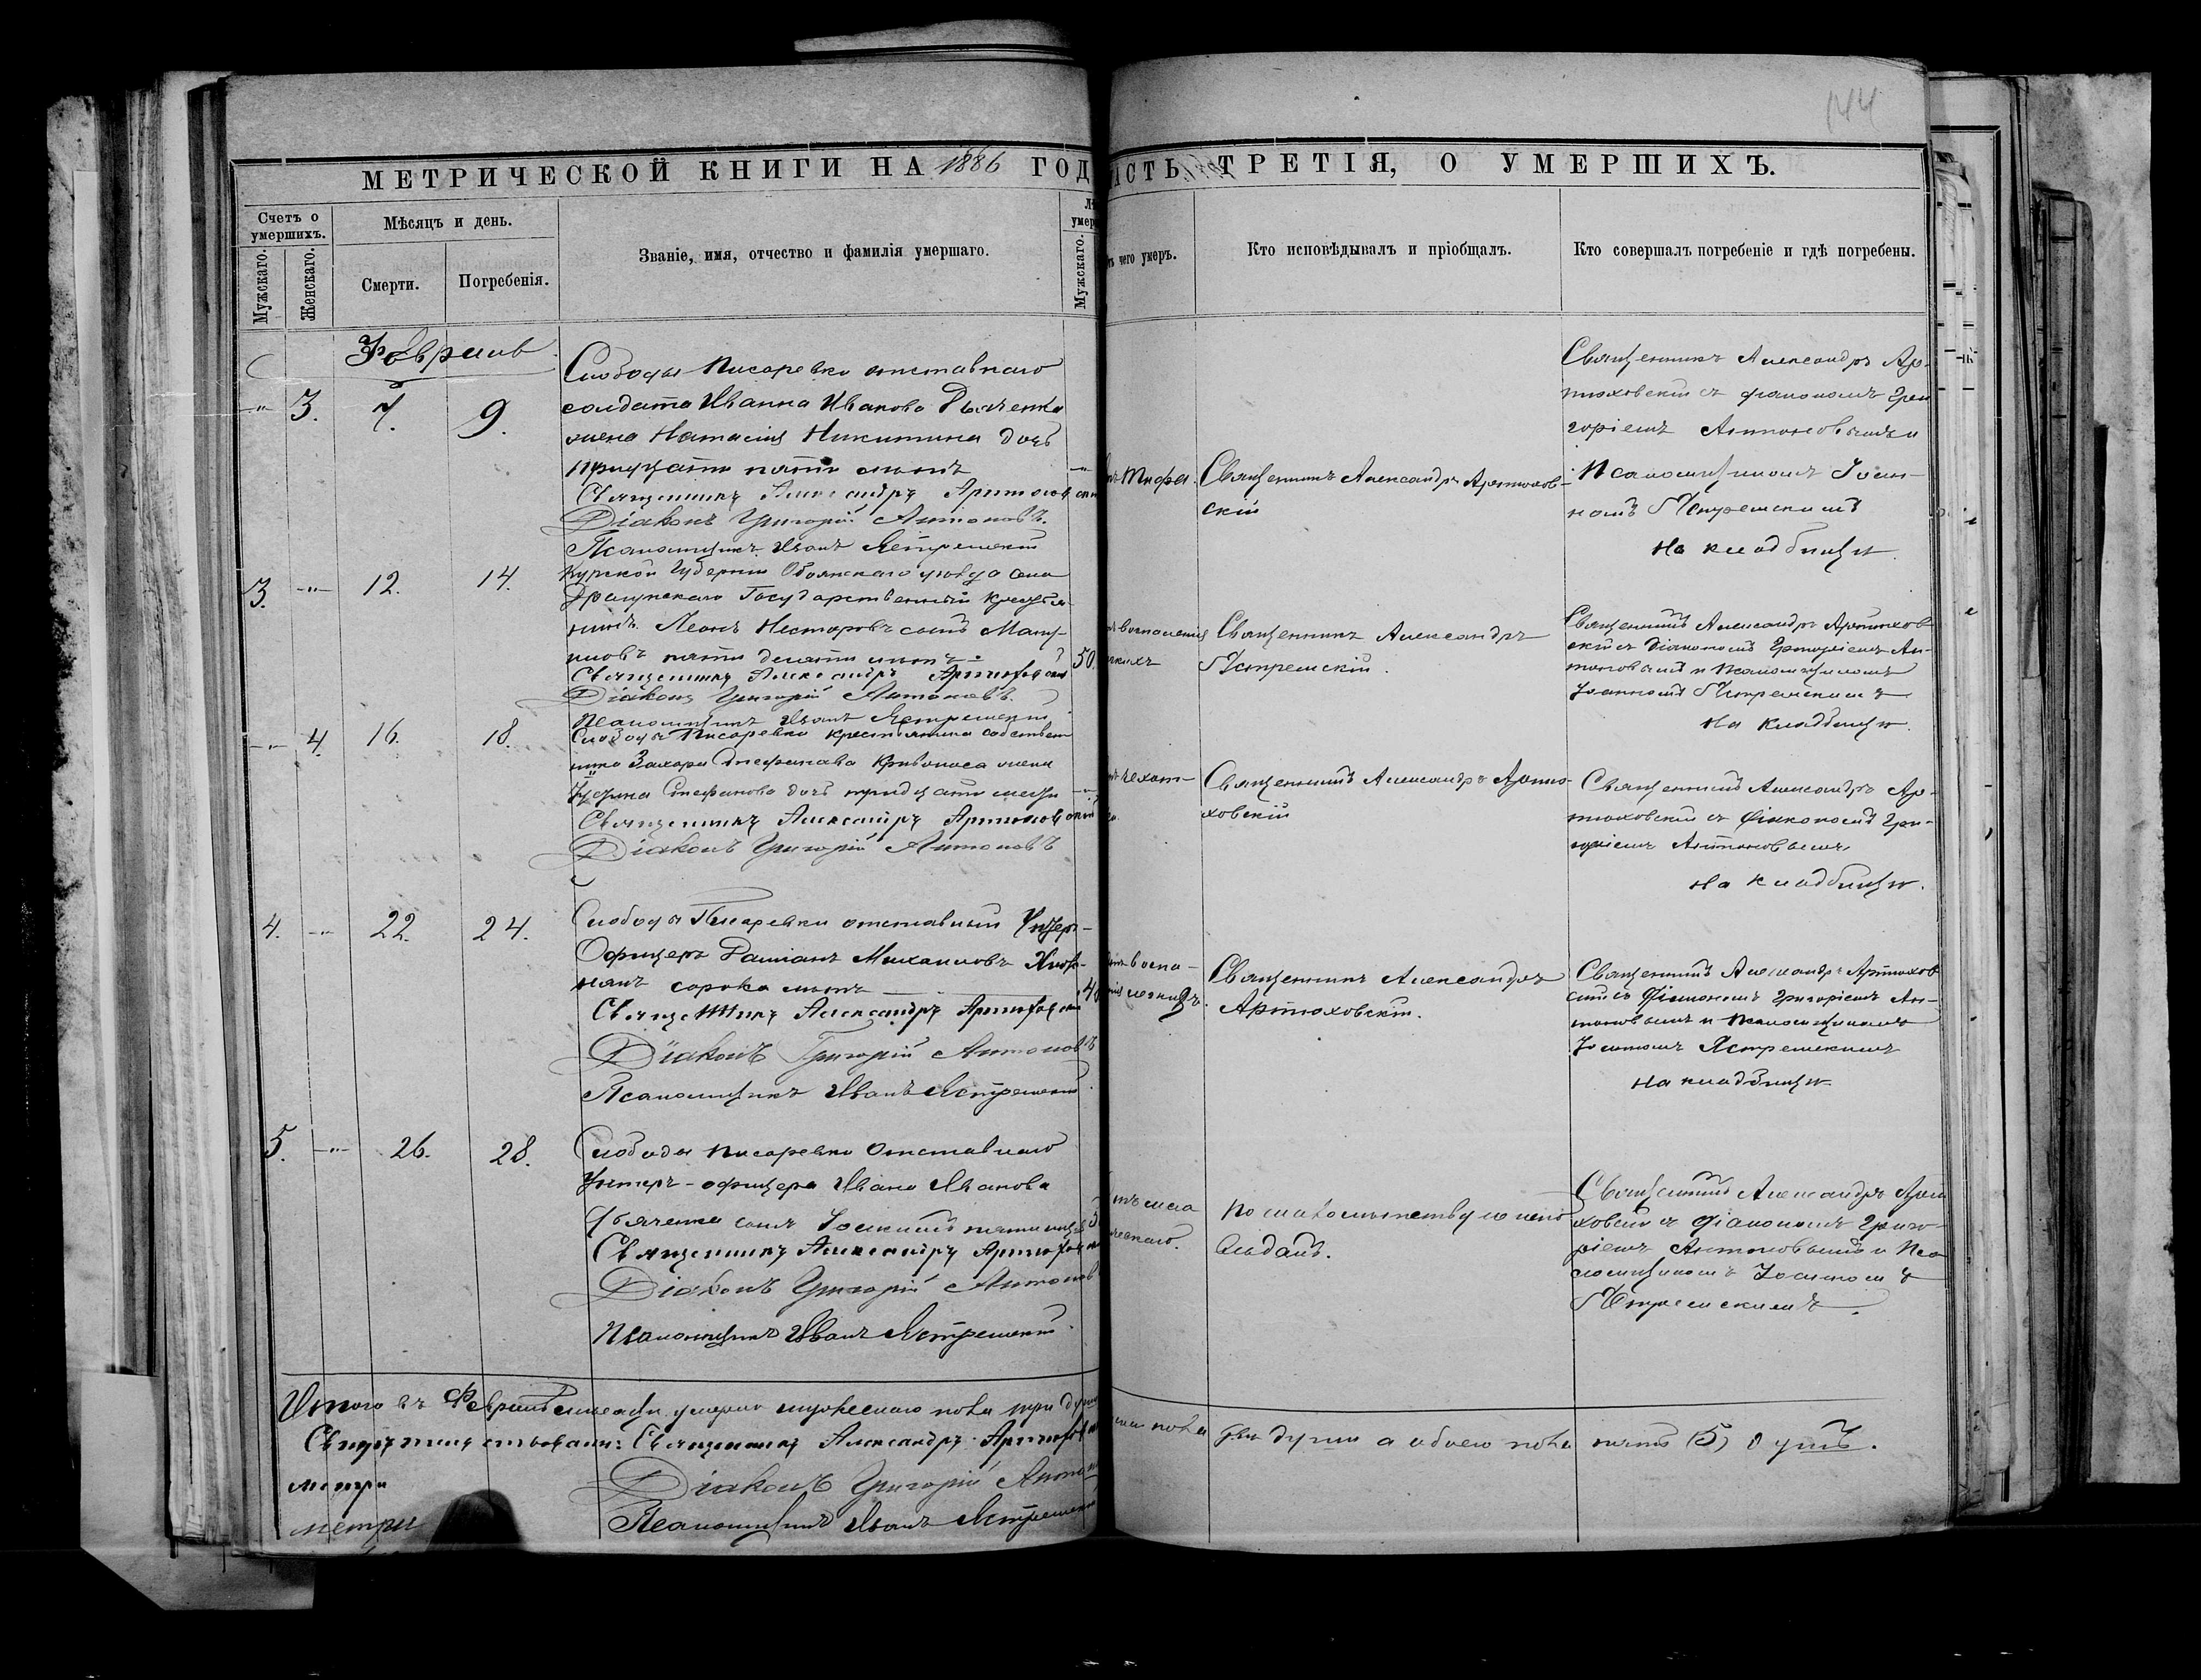 144
МЕТРИЧЕСКОЙ КНИГИ НА 1886 ГОД
АСТЬ ТРЕТІЯ, О УМЕРШИХЪ.
Счетъ о умершихъ.
Мужскаго.
Женскаго.
Мѣсяцъ и день.
Смерти.
Погребенія.
Званіе, имя, отчество и фамилія умершаго.
Мужскаго.
чего умеръ.
Кто исповѣдывалъ и пріобщалъ.
Кто совершалъ погребеніе и гдѣ погребены.
Февраль
3. 7. 9.
Слободы Писаревки отставнаго
солдата Иванна Иванова Дьяченка
жена Наталія Никитина дочь
тридцати пяти лѣтъ
Священникъ Александръ Артюховскій
Діаконъ Григорій Антоновъ.
Псаломщикъ Иванъ Ястремскій
Тифа.
Священникъ Александръ Артюхов-
скій
Священникъ Александръ Ар-
тюховскій съ діакономъ Гри
горіемъ Антоновымъ и
Псаломщикомъ Іоан-
номъ Ястремскимъ
На кладбищѣ
3. 12. 14.
Курской Губерніи Обоянскаго уѣзда села
Государственный крестья-
нинъ Леонъ Несторовъ сынъ
пяти десяти лѣтъ
50.
Священникъ Александръ Артюховскій
Діаконъ Григорій Антоновъ.
Псаломщикъ Иванъ Ястремскій
воспаленія
Священникъ Александръ
Ястремскій.
Священникъ Александръ Артюхов
скій съ Діакономъ Григоріемъ Ан-
тоновымъ и Псаломщикомъ
Іоанномъ Ястремскимъ
На кладбищѣ.
4. 16. 18.
Слободы Писаревки крестьянина собствен
ника Захара Стефанова Кривоноса жена
Стефанова дочь тридцати
Священникъ Александръ Артюховскій
Діаконъ Григорій Антоновъ
чахот-
Священникъ Александръ Артю-
ховскій
Священникъ Александръ Ар-
тюховскій съ Діакономъ Гри-
горіемъ Антоновымъ
На кладбищѣ.
4. 22. 24.
Слободы Писаревки отставный Унтеръ-
Офицеръ Даміанъ Михаиловъ
сорока лѣтъ
40
Священникъ Александръ Артюховскій
Діаконъ Григорій Антоновъ
Псаломщикъ Иванъ Ястремскій
воспа-
легкихъ.
Священникъ Александръ
Артюховскій.
Священникъ Александръ Артюхов
скій съ Діакономъ Григоріемъ Ан-
тоновымъ и Псаломщикомъ
Іоанномъ Ястремскимъ
На кладбищѣ
5. 26. 28.
Слободы Писаревки Отставнаго
Унтеръ-офицера Ивана Иванова
Дьяченка сынъ Іоакимъ пяти
Священникъ Александръ Артюховскій
Діаконъ Григорій Антоновъ
Псаломщикъ Иванъ Ястремскій
По малолѣтству не испо
вѣданъ.
Священникъ Александръ Артю
ховскій съ Діакономъ Григо-
ріемъ Антоновымъ и Пса
ломщикомъ Іоанномъ
Ястремскимъ.
Итого въ Февралѣ мѣсяцѣ умерло мужескаго пола три души
пола двѣ души а обоего пола пять (5) душъ.
Свидѣтельствовали: Священникъ Александръ Артюховскій
Діаконъ Григорій Антоновъ
Псаломщикъ Иванъ Ястремскій